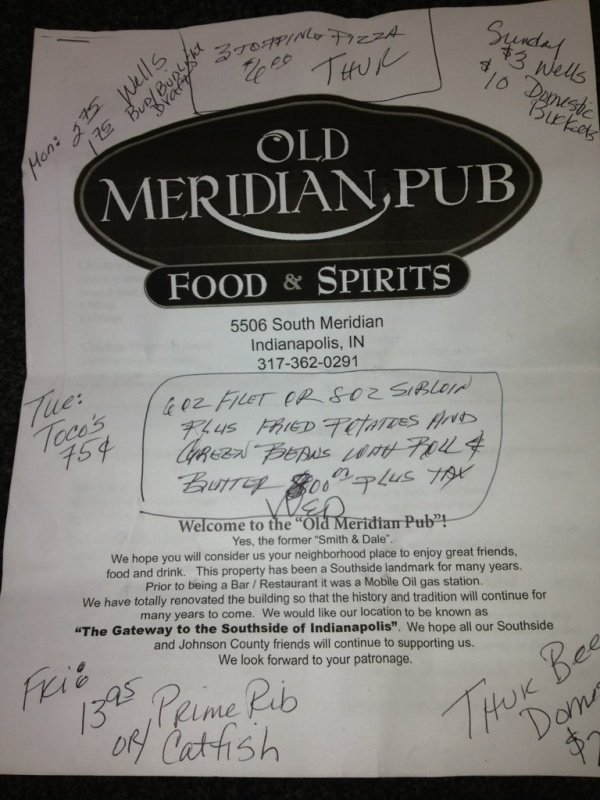 Mon: 2.75 Wells
1.75 Bud/Bud Lite
Drafts
3 TOPPING PIZZA
$6.00 THUR
Sunday
$3 Wells
$10 Domestic
Buckets
OLD
MERIDIAN PUB
FOOD & SPIRITS
5506 South Meridian
Indianapolis, IN
317-362-0291
Tue:
Toco's
75¢
6 OZ FILET OR 8 OZ SIRLOIN
PLUS FRIED POTATOES AND
GREEN BEANS WITH ROLL &
BUTTER PLUS TAX
WED
Welcome to the "Old Meridian Pub"!
Yes, the former "Smith & Dale".
We hope you will consider us your neighborhood place to enjoy great friends,
food and drink. This property has been a Southside landmark for many years.
Prior to being a Bar / Restaurant it was a Mobile Oil gas station.
We have totally renovated the building so that the history and tradition will continue for
many years to come. We would like our location to be known as
"The Gateway to the Southside of Indianapolis". We hope all our Southside
and Johnson County friends will continue to supporting us.
We look forward to your patronage.
FRI:
13.95 Prime Rib
OR/ Catfish
THUR Bee
Dome
$